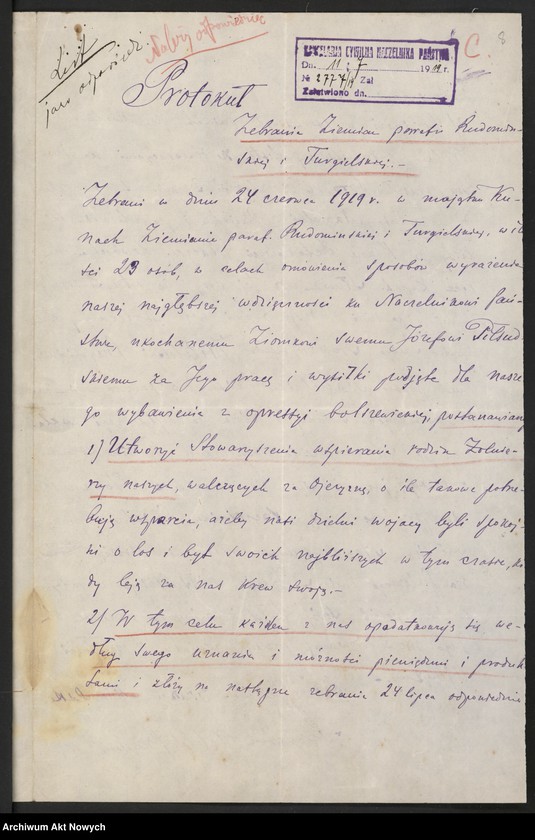 List
jako odpowiedź
Należy odpowiedzieć
KANCELARJA CYWILNA NACZELNIKA PAŃSTWA
Dn. 11 7 1919 r.
№ 2774/19 Zał
Załatwiono dn.
C. 8
Protokuł
Zebrania Ziemian parafii Rudomiń-
skiej i Turgielskiej.-
Zebrani w dniu 24 czerwca 1919 r. w majątku Ku-
nach Ziemianie paraf. Rudomińskiej i Turgielskiej, w ilo
ści 23 osób, w celach omówienia sposobów wyrażenia
naszej najgłębszej wdzięczności ku Naczelnikowi Pań-
stwa, ukochanemu Ziomkowi swemu Józefowi Piłsud
skiemu za Jego pracę i wysiłki podjęte dla nasze
go wybawienia z opresyi bolszewickiej, postanawiamy
1) Utworzyć Stowarzyszenia wspierania rodzin Żołnie-
rzy naszych, walczących za Ojczyznę, o ile takowe potrze
bują wsparcia, ażeby nasi dzielni wojacy byli spokoj-
ni o los i byt swoich najbliższych w tym czasie, kie
dy leją za nas krew swoją.-
2) W tym celu każden z nas opodatkowują się we-
dług swego uznania i możności pieniędzmi i produk
tami i złożą na następne zebrania 24 lipca odpowiednie
Archiwum Akt Nowych